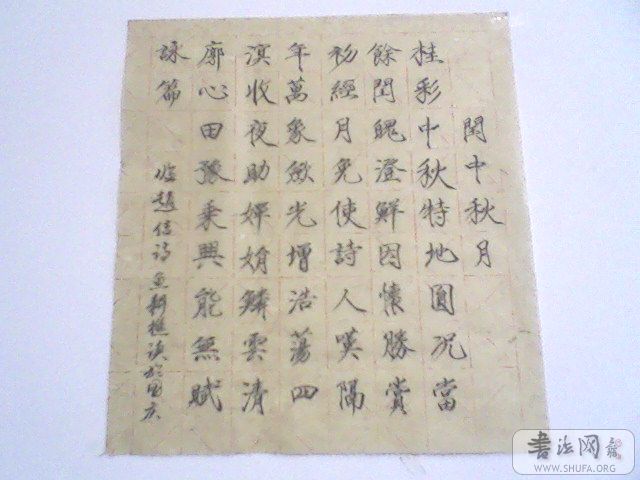 閏中秋月
桂彩中秋特地圓況當
餘閏魄澄鮮因懷勝賞
初經月免使詩人嘆隔
年萬象斂光增浩蕩四
溟收夜助嬋娟鱗雲清
廓心田豫乘興能無賦
詠篇
臨趙佶詩魚耕樵讀於國慶
書法网
WWW.SHUFA.ORG